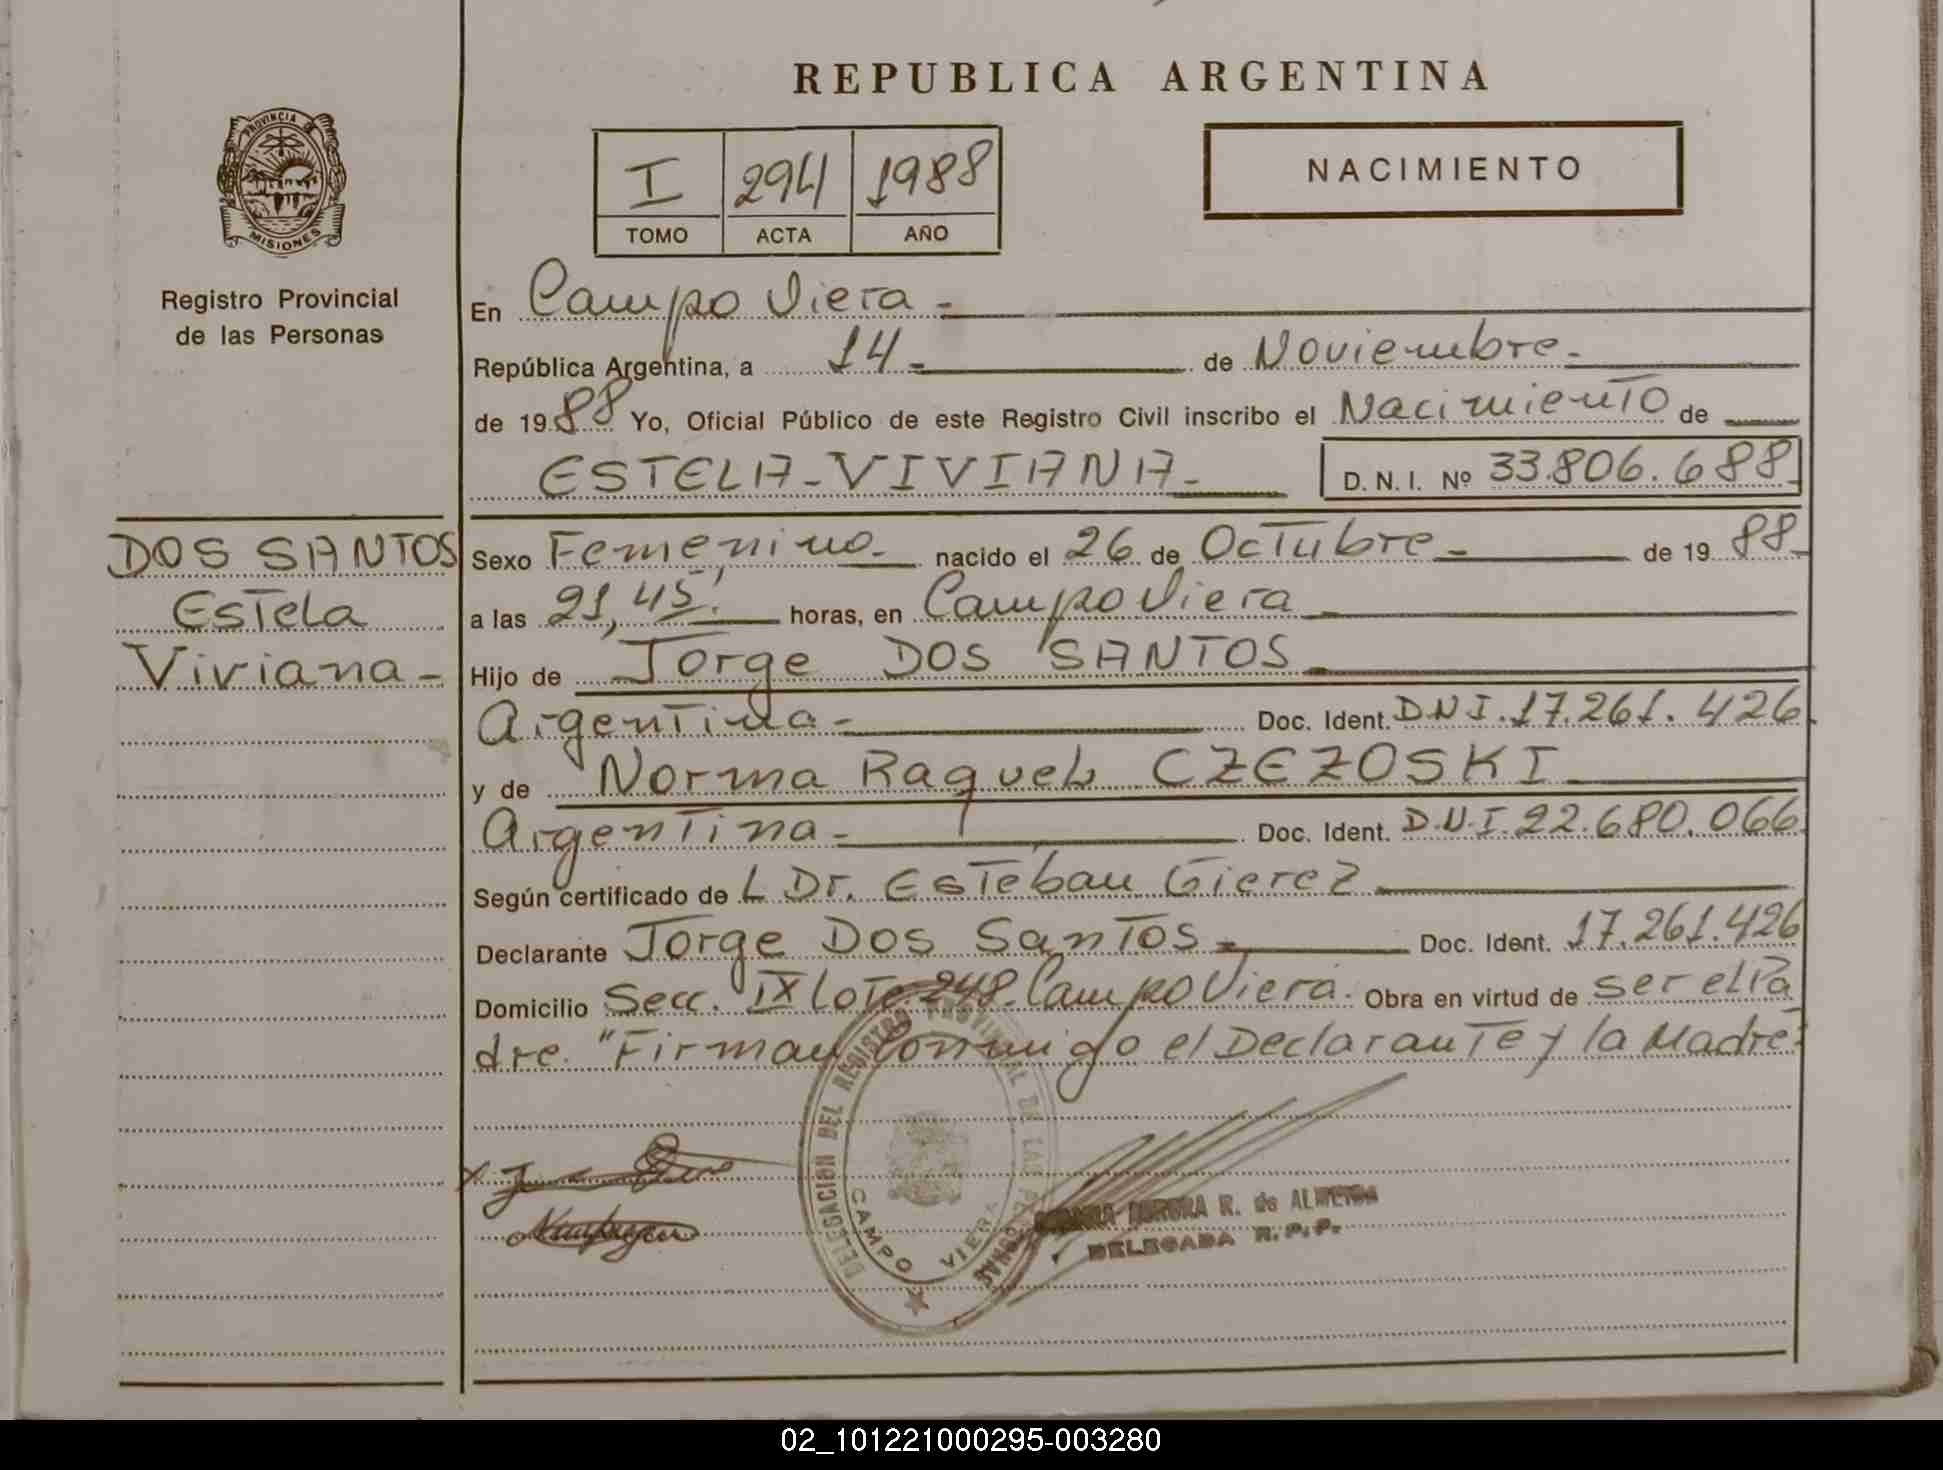 REPUBLICA ARGENTINA
PROVINCIA DE
MISIONES
Registro Provincial
de las Personas
I 294 1988
TOMO ACTA AÑO
NACIMIENTO
En Campo Viera -
República Argentina, a 14 - de Noviembre -
de 1988 Yo, Oficial Público de este Registro Civil inscribo el Nacimiento de
ESTELA - VIVIANA - D. N. I. Nº 33.806.688
DOS SANTOS
Estela
Viviana -
Sexo Femenino - nacido el 26 de Octubre - de 1988 -
a las 21,45' horas, en Campo Viera -
Hijo de Jorge DOS SANTOS
Argentina - Doc. Ident. D.N.I. 17.261.426
y de Norma Raquel CZEZOSKI
Argentina - Doc. Ident. D.N.I. 22.680.066
Según certificado de L Dr. Esteban Gierez
Declarante Jorge Dos Santos - Doc. Ident. 17.261.426
Domicilio Secc. IX Lote 248 Campo Viera. Obra en virtud de ser el Pa
dre. "Firman conmigo el Declarante y la Madre"
DELEGACION DEL REGISTRO PROVINCIAL DE LAS PERSONAS
CAMPO VIERA
AURORA R. de ALMEIDA
DELEGADA R.P.P.
02_101221000295-003280